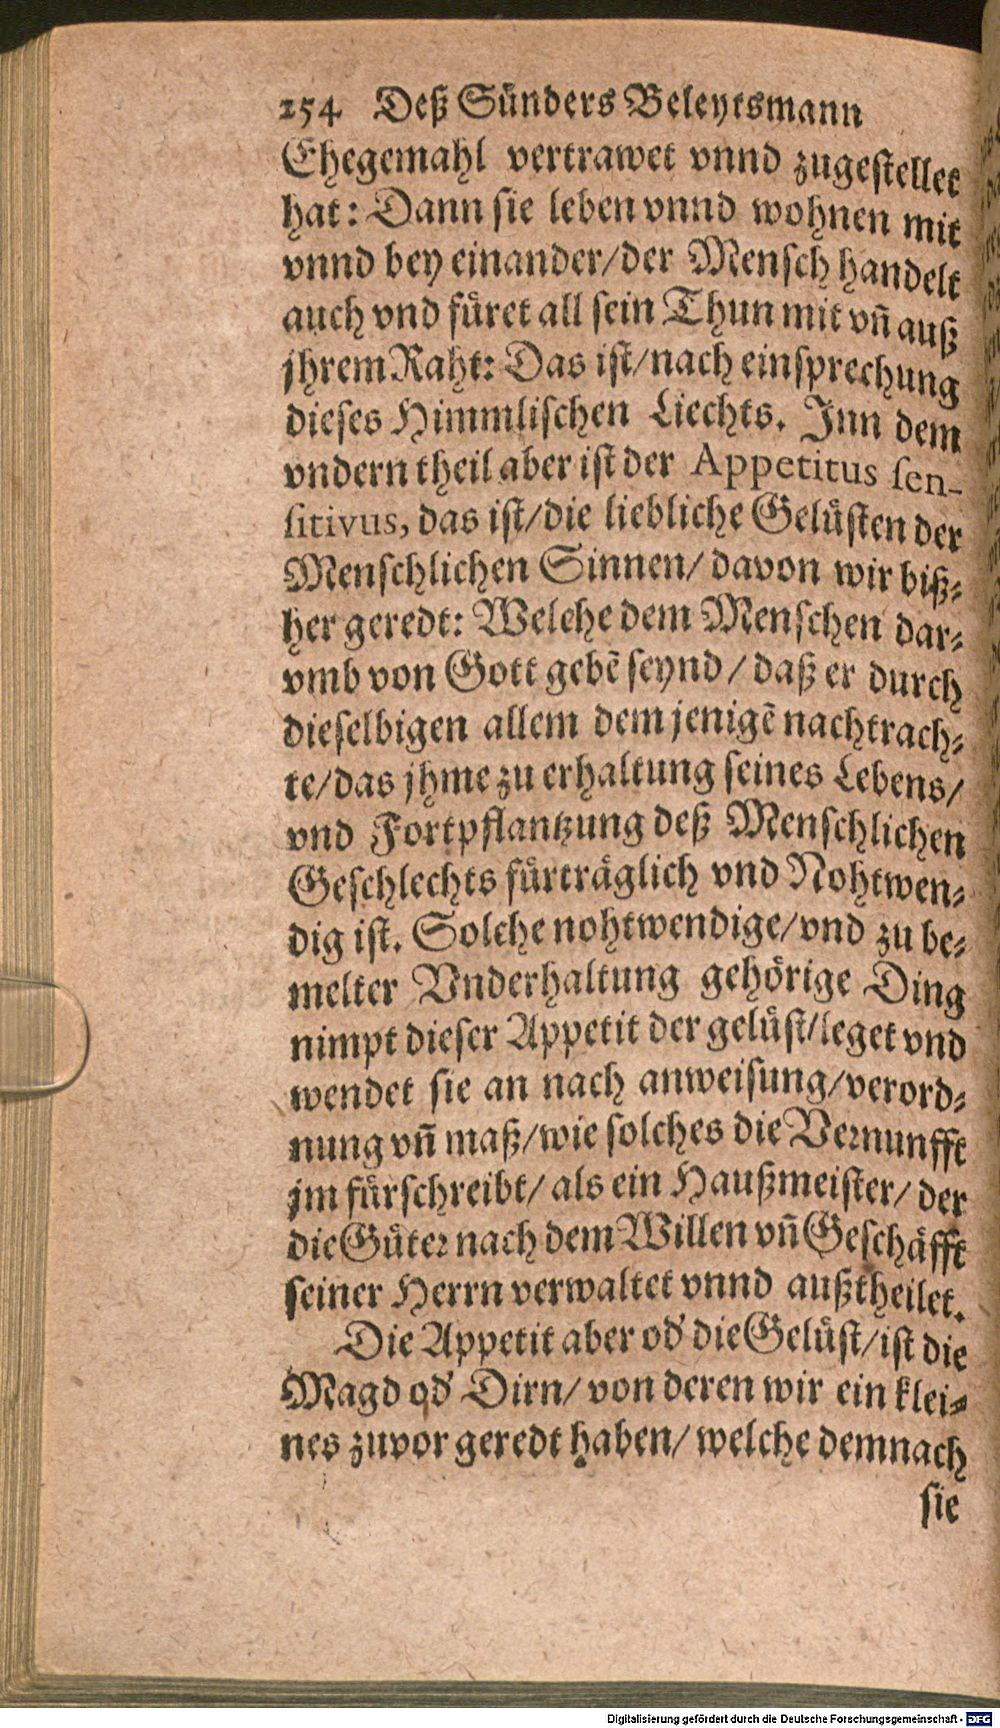 254 Deß Sünders Beleytsmann
Ehegemahl vertrawet vnnd zugestellet
hat: Dann sie leben vnnd wohnen mit
vnnd bey einander/der Mensch handelt
auch vnd füret all sein Thun mit vñ auß
jhrem Raht: Das ist/nach einsprechung
dieses Himmlischen Liechts. Inn dem
vndern theil aber ist der Appetitus sen-
sitivus, das ist/die liebliche Gelüsten der
Menschlichen Sinnen/ davon wir biß-
her geredt: Welche dem Menschen dar-
vmb von Gott gebẽ seynd/ daß er durch
dieselbigen allem dem jenigẽ nachtrach-
te/das jhme zu erhaltung seines Lebens/
vnd Fortpflantzung deß Menschlichen
Geschlechts fürträglich vnd Nohtwen-
dig ist. Solche nohtwendige/vnd zu be-
melter Vnderhaltung gehörige Ding
nimpt dieser Appetit der gelüst/leget vnd
wendet sie an nach anweisung/verord-
nung vñ maß/wie solches die Vernunfft
jm fürschreibt/ als ein Haußmeister/ der
die Güter nach dem Willen vñ Geschäfft
seiner Herrn verwaltet vnnd außtheilet.
Die Appetit aber od' die Gelüst/ist die
Magd od' Dirn/ von deren wir ein klei-
nes zuvor geredt haben/ welche demnach
sie
Digitalisierung gefördert durch die Deutsche Forschungsgemeinschaft - DFG